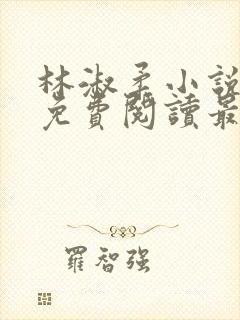 林淑柔小說
免費閱讀最
羅智強